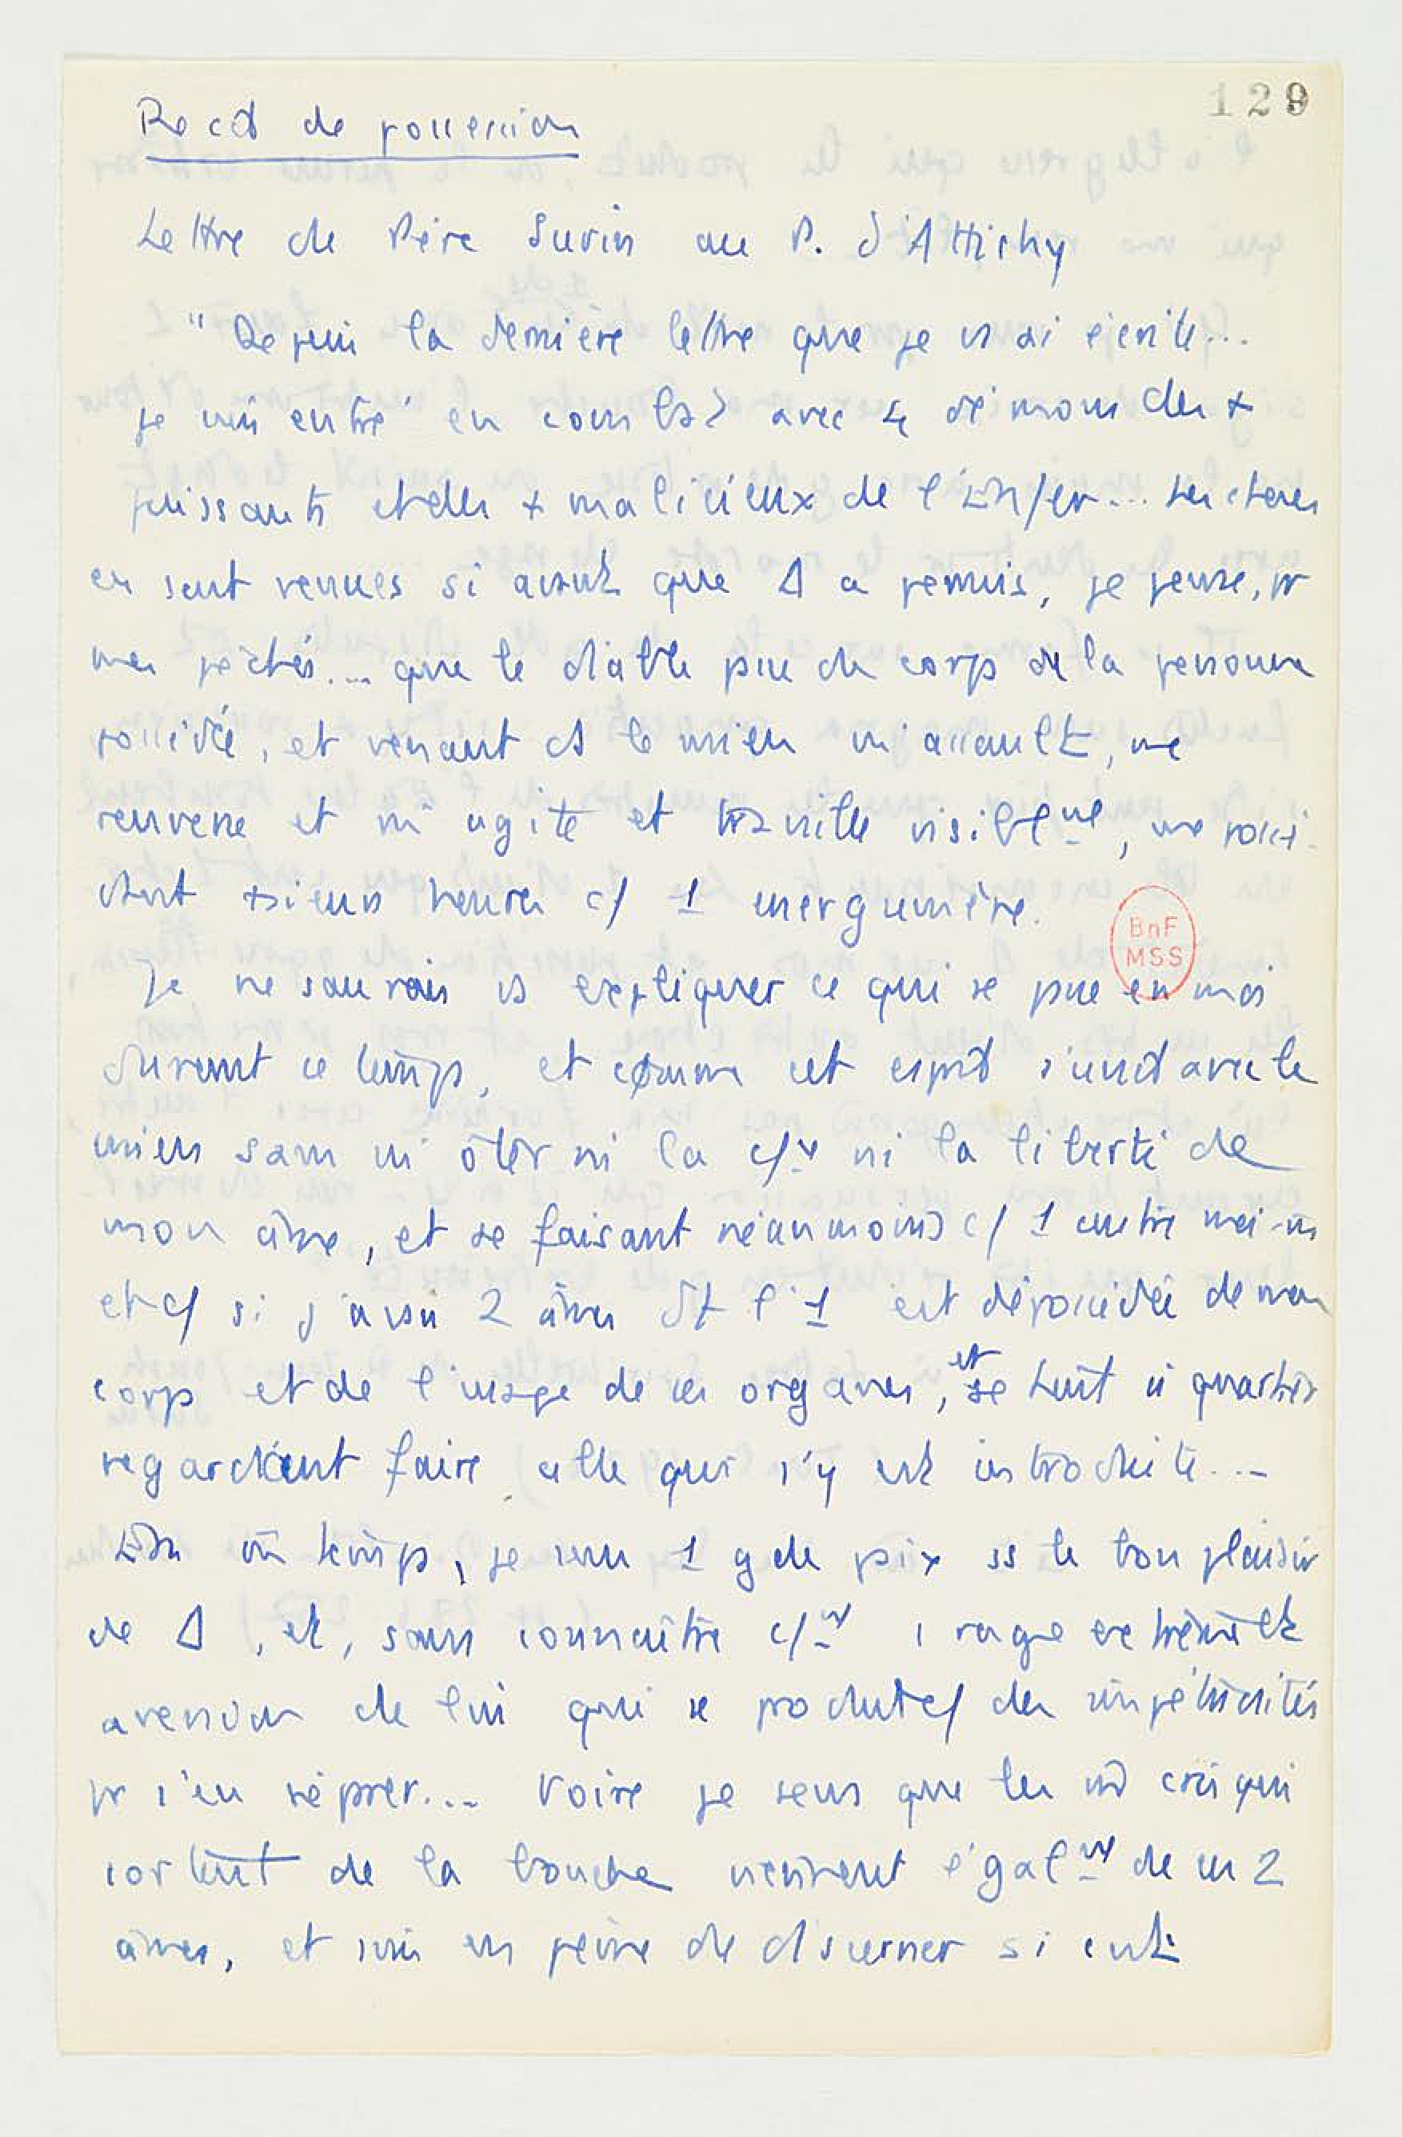 129
Récit de possession
Lettre de Père Surin au P. d'Attichy
"Depuis la dernière lettre que je vs ai écrite...
je suis entré en combat avec 4 démons des +
puissants et des + malicieux de l'Enfer... Les choses
en sont venues si avant que Δ a permis, je pense, pr
mes péchés... que le diable passe du corps de la personne
possédée, et venant ds le mien m'assault, me
renverse et m'agite et travaille visiblemt, me possé-
dant +sieurs heures c/ 1 energumène.
Je ne saurais vs expliquer ce qui se passe en moi
BnF
MSS
durant ce temps, et comme cet esprit s'unit avec le
mien sans m'ôter ni la c/ce ni la liberté de
mon âme, et se faisant néanmoins c/ 1 autre moi-m
et c/ si j'avais 2 âmes dt l'1 est dépossédée de mon
corps et de l'usage de ses organes, et se tient à quartier
regardant faire celle qui s'y est introduite...
En m temps, je sens 1 gde paix ss le bon plaisir
de Δ, et, sans connaître c/mt 1 rage extrême et
aversion de lui qui se produit c/ des impétuosités
pr s'en séparer... Voire je sens que les m cris qui
sortent de la bouche viennent égalmt de ces 2
âmes, et suis en peine de discerner si c'est